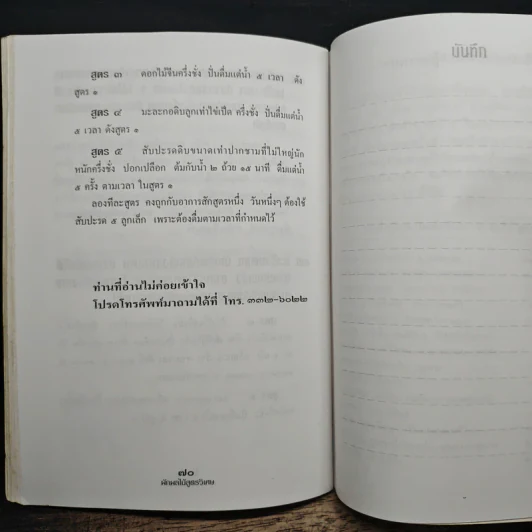 สูตร ๓ ดอกไม้จีนครึ่งชั่ง ปั่นดื่มแต่น้ำ ๕ เวลา ดัง
สูตร ๑
สูตร ๔ มะละกอดิบลูกเท่าไข่เป็ด ครึ่งชั่ง ปั่นดื่มแต่น้ำ
๕ เวลา ดังสูตร ๑
สูตร ๕ สับปะรดดิบขนาดเท่าปากชามที่ไม่ใหญ่นัก
หนักครึ่งชั่ง ปอกเปลือก ต้มกับน้ำ ๒ ถ้วย ๑๕ นาที ดื่มแต่น้ำ
๕ ครั้ง ตามเวลา ในสูตร ๑
ลองทีละสูตร คงถูกกับอาการสักสูตรหนึ่ง วันหนึ่งๆ ต้องใช้
สับปะรด ๕ ลูกเล็ก เพราะต้องดื่มตามเวลาที่กำหนดไว้
ท่านที่อ่านไม่ค่อยเข้าใจ
โปรดโทรศัพท์มาถามได้ที่ โทร. ๓๓๒-๖๐๒๒
๗๐
ผักผลไม้สูตรวิเศษ
บันทึก